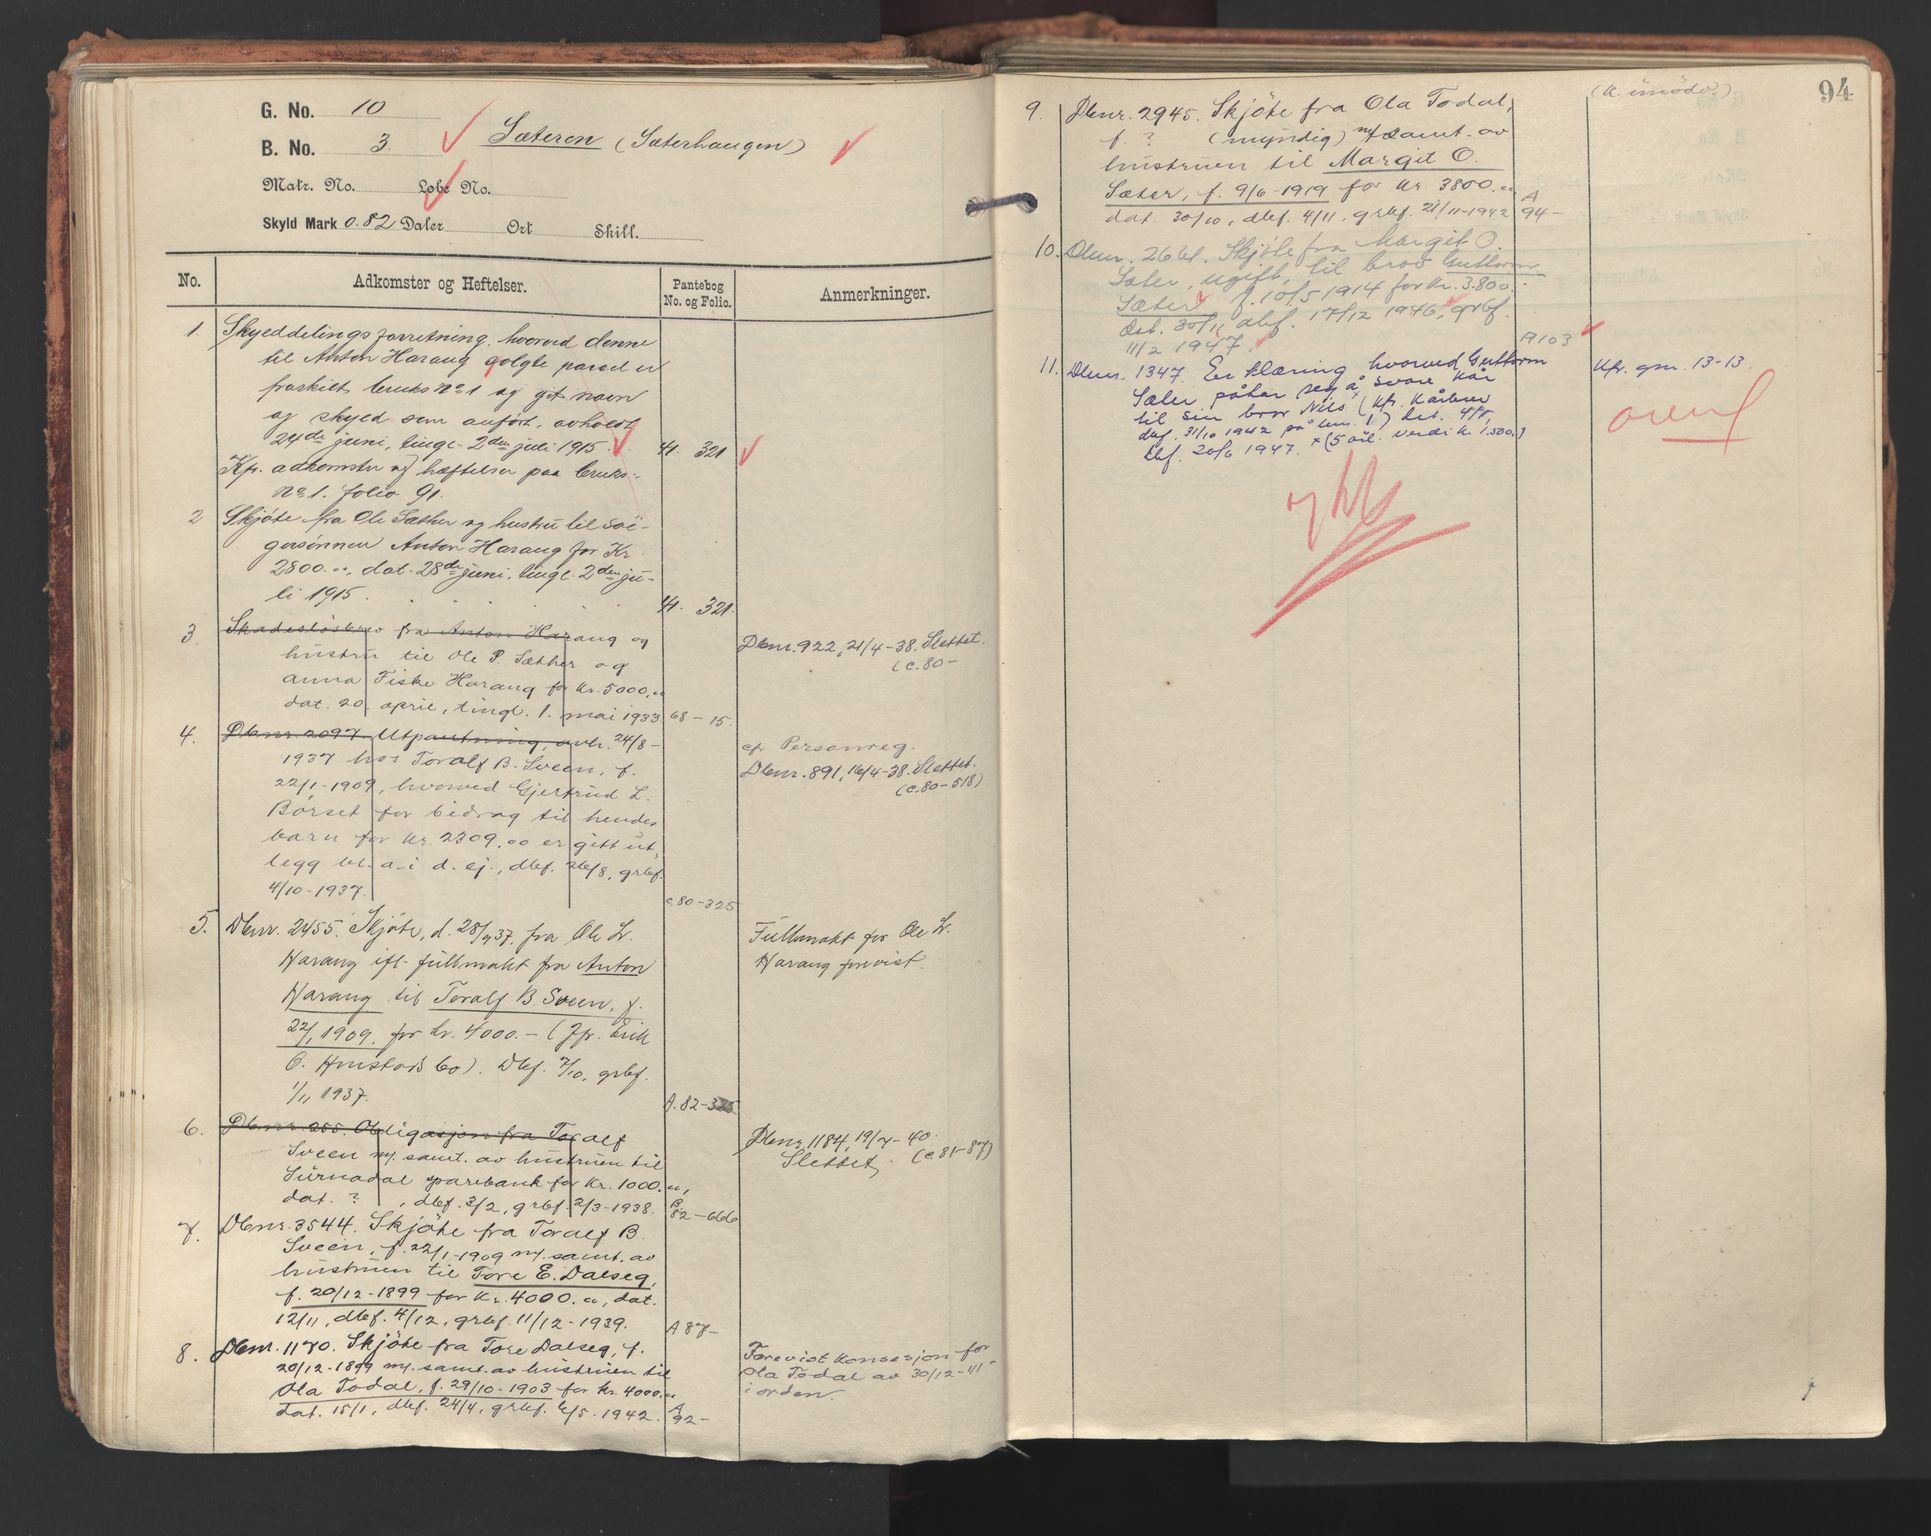 G. No. 10
B. No. 3.
Sæteren (Sæterhaugen)
Matr. No. Løbe No.
Skyld Mark 0.82 Daler Ort Skill.
No. Adkomster og Heftelser. Pantebog No. og Folio. Anmerkninger.
1. Skylddelingsforretning, hvorved denne
til Anton Harang solgte parcel er
fraskilt bruks no 1 og git navn
og skyld som anført, avholdt
24de juni, tingl. 2den juli 1915. 41. 321
Kfr. adkomster og hæftelser paa bruks-
no 1. folio 91.
2 Skjøte fra Ole Sæther og hustru til svi-
gersønnen Anton Harang for Kr
2800.00, dat. 28de juni, tingl. 2den ju-
li 1915. 41. 321.
3. Skadesløsbrev fra Anton Harang og
hustru til Ole P. Sæther og
Anna Fiske Harang for Kr. 5000.00
dat. 20. april, tingl. 1. mai 1933 68-15.
Dbnr. 922, 21/4-38. Slettet.
(C.80-
4. Dbnr. 2097. Utpantning, avh. 24/8-
1937 hos Toralf B. Sveen, f.
22/1-1909, hvorved Gjertrud L.
Børset for bidrag til hendes
barn for Kr. 2309.00 er gitt ut-
legg bl. a. i d. ej., dbf. 26/8, grbf.
4/10-1937. C.80-325
cfr Personreg.
Dbnr. 891, 16/4-38. Slettet.
(C.80-518)
5. Dbnr. 2455. Skjøte, d. 28/9 37, fra Ole L.
Harang ifl. fullmakt fra Anton
Harang til Toralf B. Sveen, f.
22/1 1909, for kr. 4000.- (Jfr. Erik
O. Hustads bo). Dbf. 7/10, grbf.
1/11 1937. A.82-325
Fullmakt for Ole L.
Harang forevist.
6. Dbnr. 255. Obligasjon fra Toralf
Sveen m/ samt. av hustruen til
Surnadal sparebank for Kr. 1000.00,
dat. ? , dbf. 3/2, grbf. 2/3-1938. B. 82-666
Dbnr. 1184, 19/7-40.
Slettet. (C.81-87)
7. Dbnr. 3544. Skjøte fra Toralf B.
Sveen, f. 22/1-1909 m/ samt. av
hustruen til Tore E. Dalseg,
f. 20/12-1899 for Kr. 4000.00, dat.
12/11, dbf. 4/12, grbf. 11/12-1939. A 87-
8. Dbnr. 1170. Skjøte fra Tore Dalseg, f.
20/12-1899 m/ samt. av hustruen til
Ola Todal, f. 29/10-1903 for Kr. 4000.00
dat. 15/1, dbf. 24/4, grbf. 6/5-1942. A 92-
Forevist konsesjon for
Ola Todal av 30/12-41-
i orden.
94
9. Dbnr. 2945. Skjøte fra Ola Todal,
f. ? (myndig) m/ samt. av
hustruen til Margit O.
Sæter, f. 9/6-1919 for Kr. 3800.00
dat. 30/10, dbf. 4/11, grbf. 21/11-1942 A 94-
10. Dbnr. 2661. Skjøte fra Margit O.
Sæter, ugift, til bror Guttorm
Sæter f. 10/5 1914 for Kr. 3.800.-
Dat. 30/11 dbf. 17/12 1946, grbf.
11/2 1947. A 103
11. Dbnr. 1347. Erklæring hvorved Guttorm
Sæter påtar seg å svare kår
til sin bror Nils (kfr. kårbrev
dbf. 31/10 1942 på bnr. 1) dat. 4/5,
dbf. 20/6 1947. x (5 årl. verdi kr 1.500.)
Kfr. gnr. 13-13.